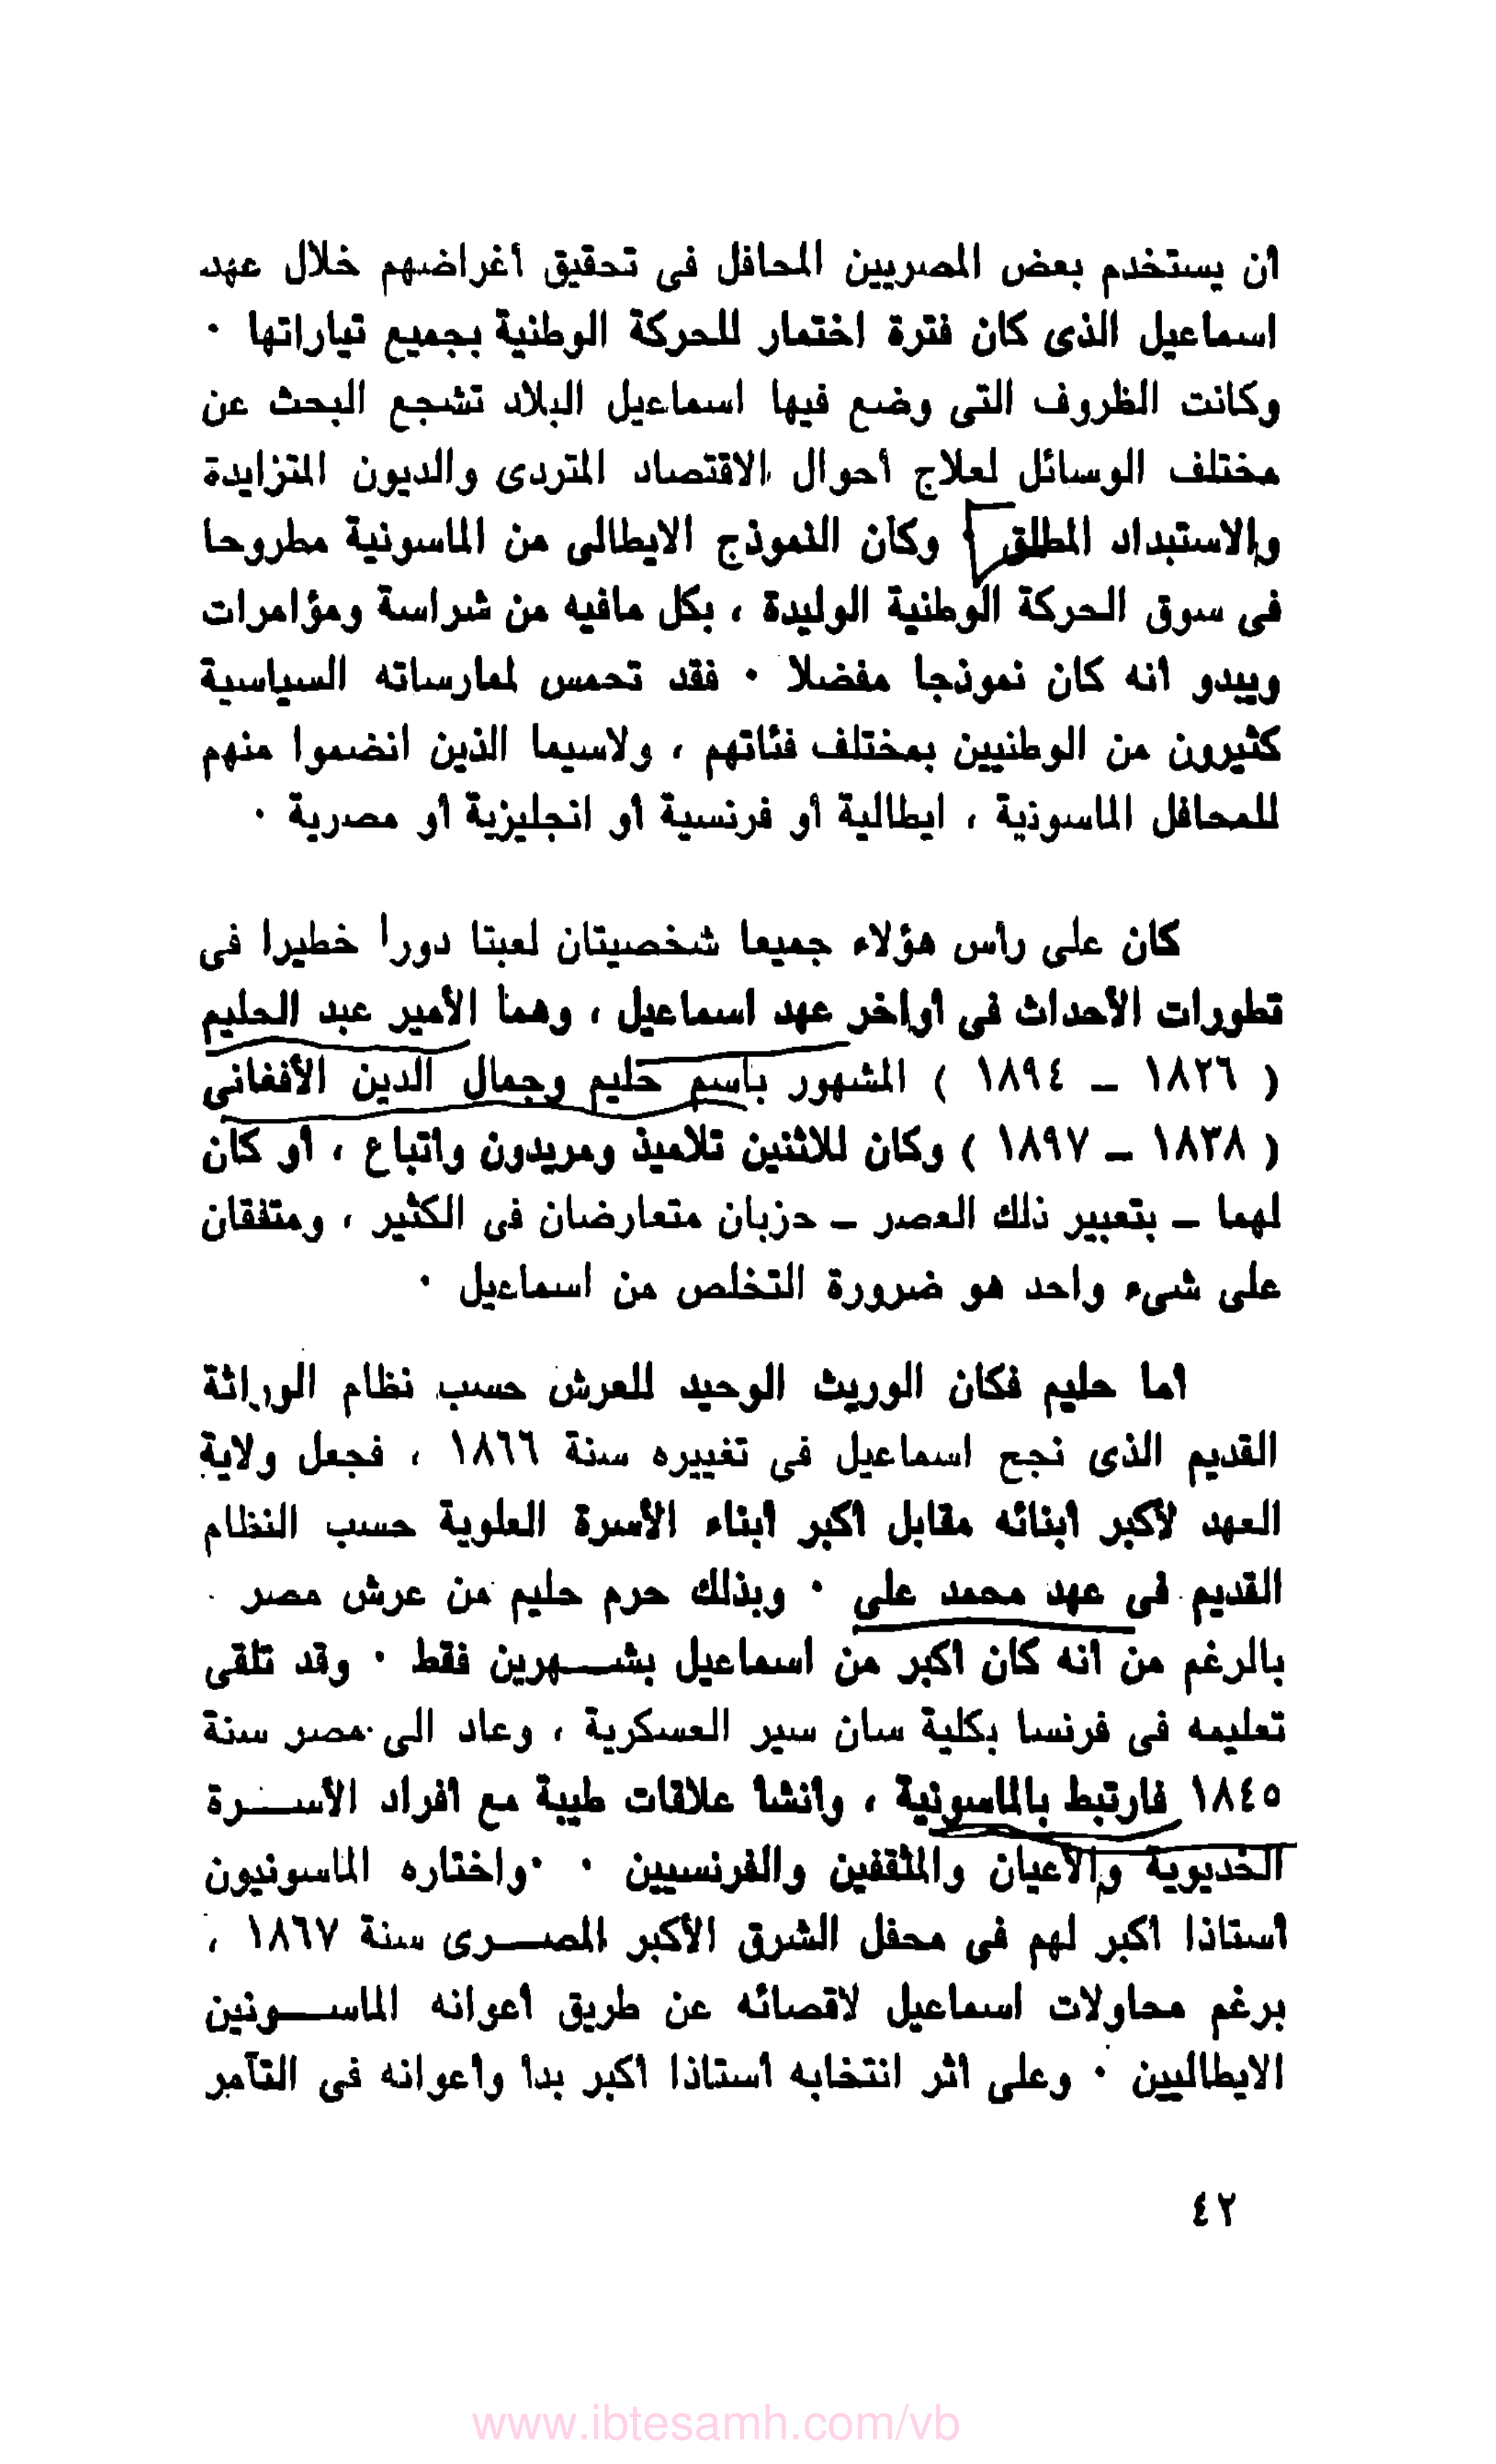 أن يستخدم بعض المصريين المحافل فى تحقيق أغراضهم خلال عهد
اسماعيل الذى كان فترة اختمار للحركة الوطنية بجميع تياراتها ٠
وكانت الظروف التى وضع فيها اسماعيل البلاد تشجع البحث عن
مختلف الوسائل لعلاج أحوال الاقتصاد المتردى والديون المتزايدة
والاستبداد المطلق ٠ وكان النموذج الايطالى من الماسونية مطروحا
فى سوق الحركة الوطنية الوليدة ، بكل مافيه من شراسة ومؤامرات
ويبدو أنه كان نموذجا مفضلا ٠ فقد تحمس لممارساته السياسية
كثيرون من الوطنيين بمختلف فئاتهم ، ولاسيما الذين انضموا منهم
للمحافل الماسونية ، ايطالية أو فرنسية أو انجليزية أو مصرية ٠
كان على رأس هؤلاء جميعا شخصيتان لعبتا دورا خطيرا فى
تطورات الأحداث فى أواخر عهد اسماعيل ، وهما الأمير عبد الحليم
( ١٨٢٦ – ١٨٩٤ ) المشهور باسم حليم وجمال الدين الأفغانى
( ١٨٣٨ – ١٨٩٧ ) وكان للاثنين تلاميذ ومريدون واتباع ، أو كان
لهما – بتعبير ذلك العصر – حزبان متعارضان فى الكثير ، ومتفقان
على شىء واحد هو ضرورة التخلص من اسماعيل ٠
أما حليم فكان الوريث الوحيد للعرش حسب نظام الوراثة
القديم الذى نجح اسماعيل فى تغييره سنة ١٨٦٦ ، فجعل ولاية
العهد لأكبر أبنائه مقابل أكبر أبناء الأسرة العلوية حسب النظام
القديم فى عهد محمد على ٠ وبذلك حرم حليم من عرش مصر
بالرغم من أنه كان أكبر من اسماعيل بشهرين فقط ٠ وقد تلقى
تعليمه فى فرنسا بكلية سان سير العسكرية ، وعاد الى مصر سنة
١٨٤٥ فارتبط بالماسونية ، وأنشأ علاقات طيبة مع أفراد الأسرة
الخديوية والأعيان والمثقفين والفرنسيين ٠ واختاره الماسونيون
أستاذا أكبر لهم فى محفل الشرق الأكبر المصرى سنة ١٨٦٧ ،
برغم محاولات اسماعيل لاقصائه عن طريق أعوانه الماسونين
الايطاليين ٠ وعلى أثر انتخابه أستاذا أكبر بدأ وأعوانه فى التآمر
٤٢
www.ibtesamh.com/vb